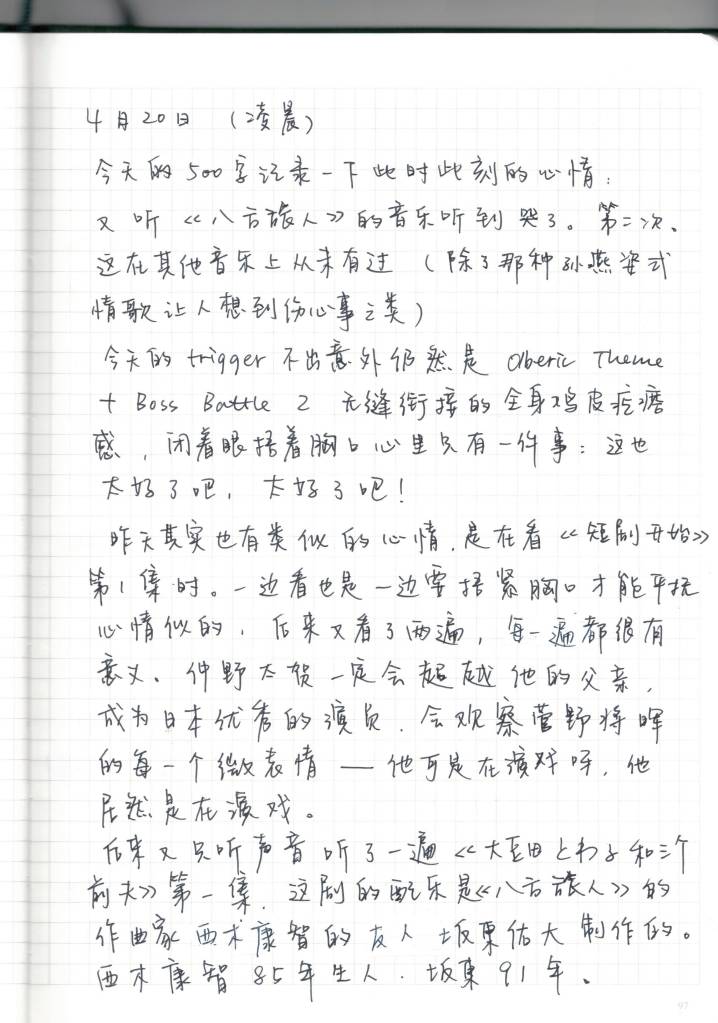 4月20日 (凌晨)
今天的500字记录一下此时此刻的心情:
又听《八方旅人》的音乐听到哭了。第二次、
这在其他音乐上从未有过(除了那种孙燕姿式
情歌让人想到伤心事之类)
今天的trigger不出意外仍然是Olberic Theme
+ Boss Battle 2 无缝衔接的全身鸡皮疙瘩
感,闭着眼捂着胸口心里只有一件事:这也
太好了吧,太好了吧!
昨天其实也有类似的心情,是在看《短剧开始》
第1集时。一边看也是一边要捂紧胸口才能平抚
心情似的,后来又看了两遍,每一遍都很有
意义。仲野太贺一定会超越他的父亲,
成为日本优秀的演员,会观察菅野将晖
的每一个微表情——他可是在演戏呀,他
居然是在演戏。
后来又只听声音听了一遍《大豆田とわ子和三个
前夫》第一集,这剧的配乐是《八方旅人》的
作曲家西木康智的友人坂東佑大制作的。
西木康智85年生人,坂東91年。
97